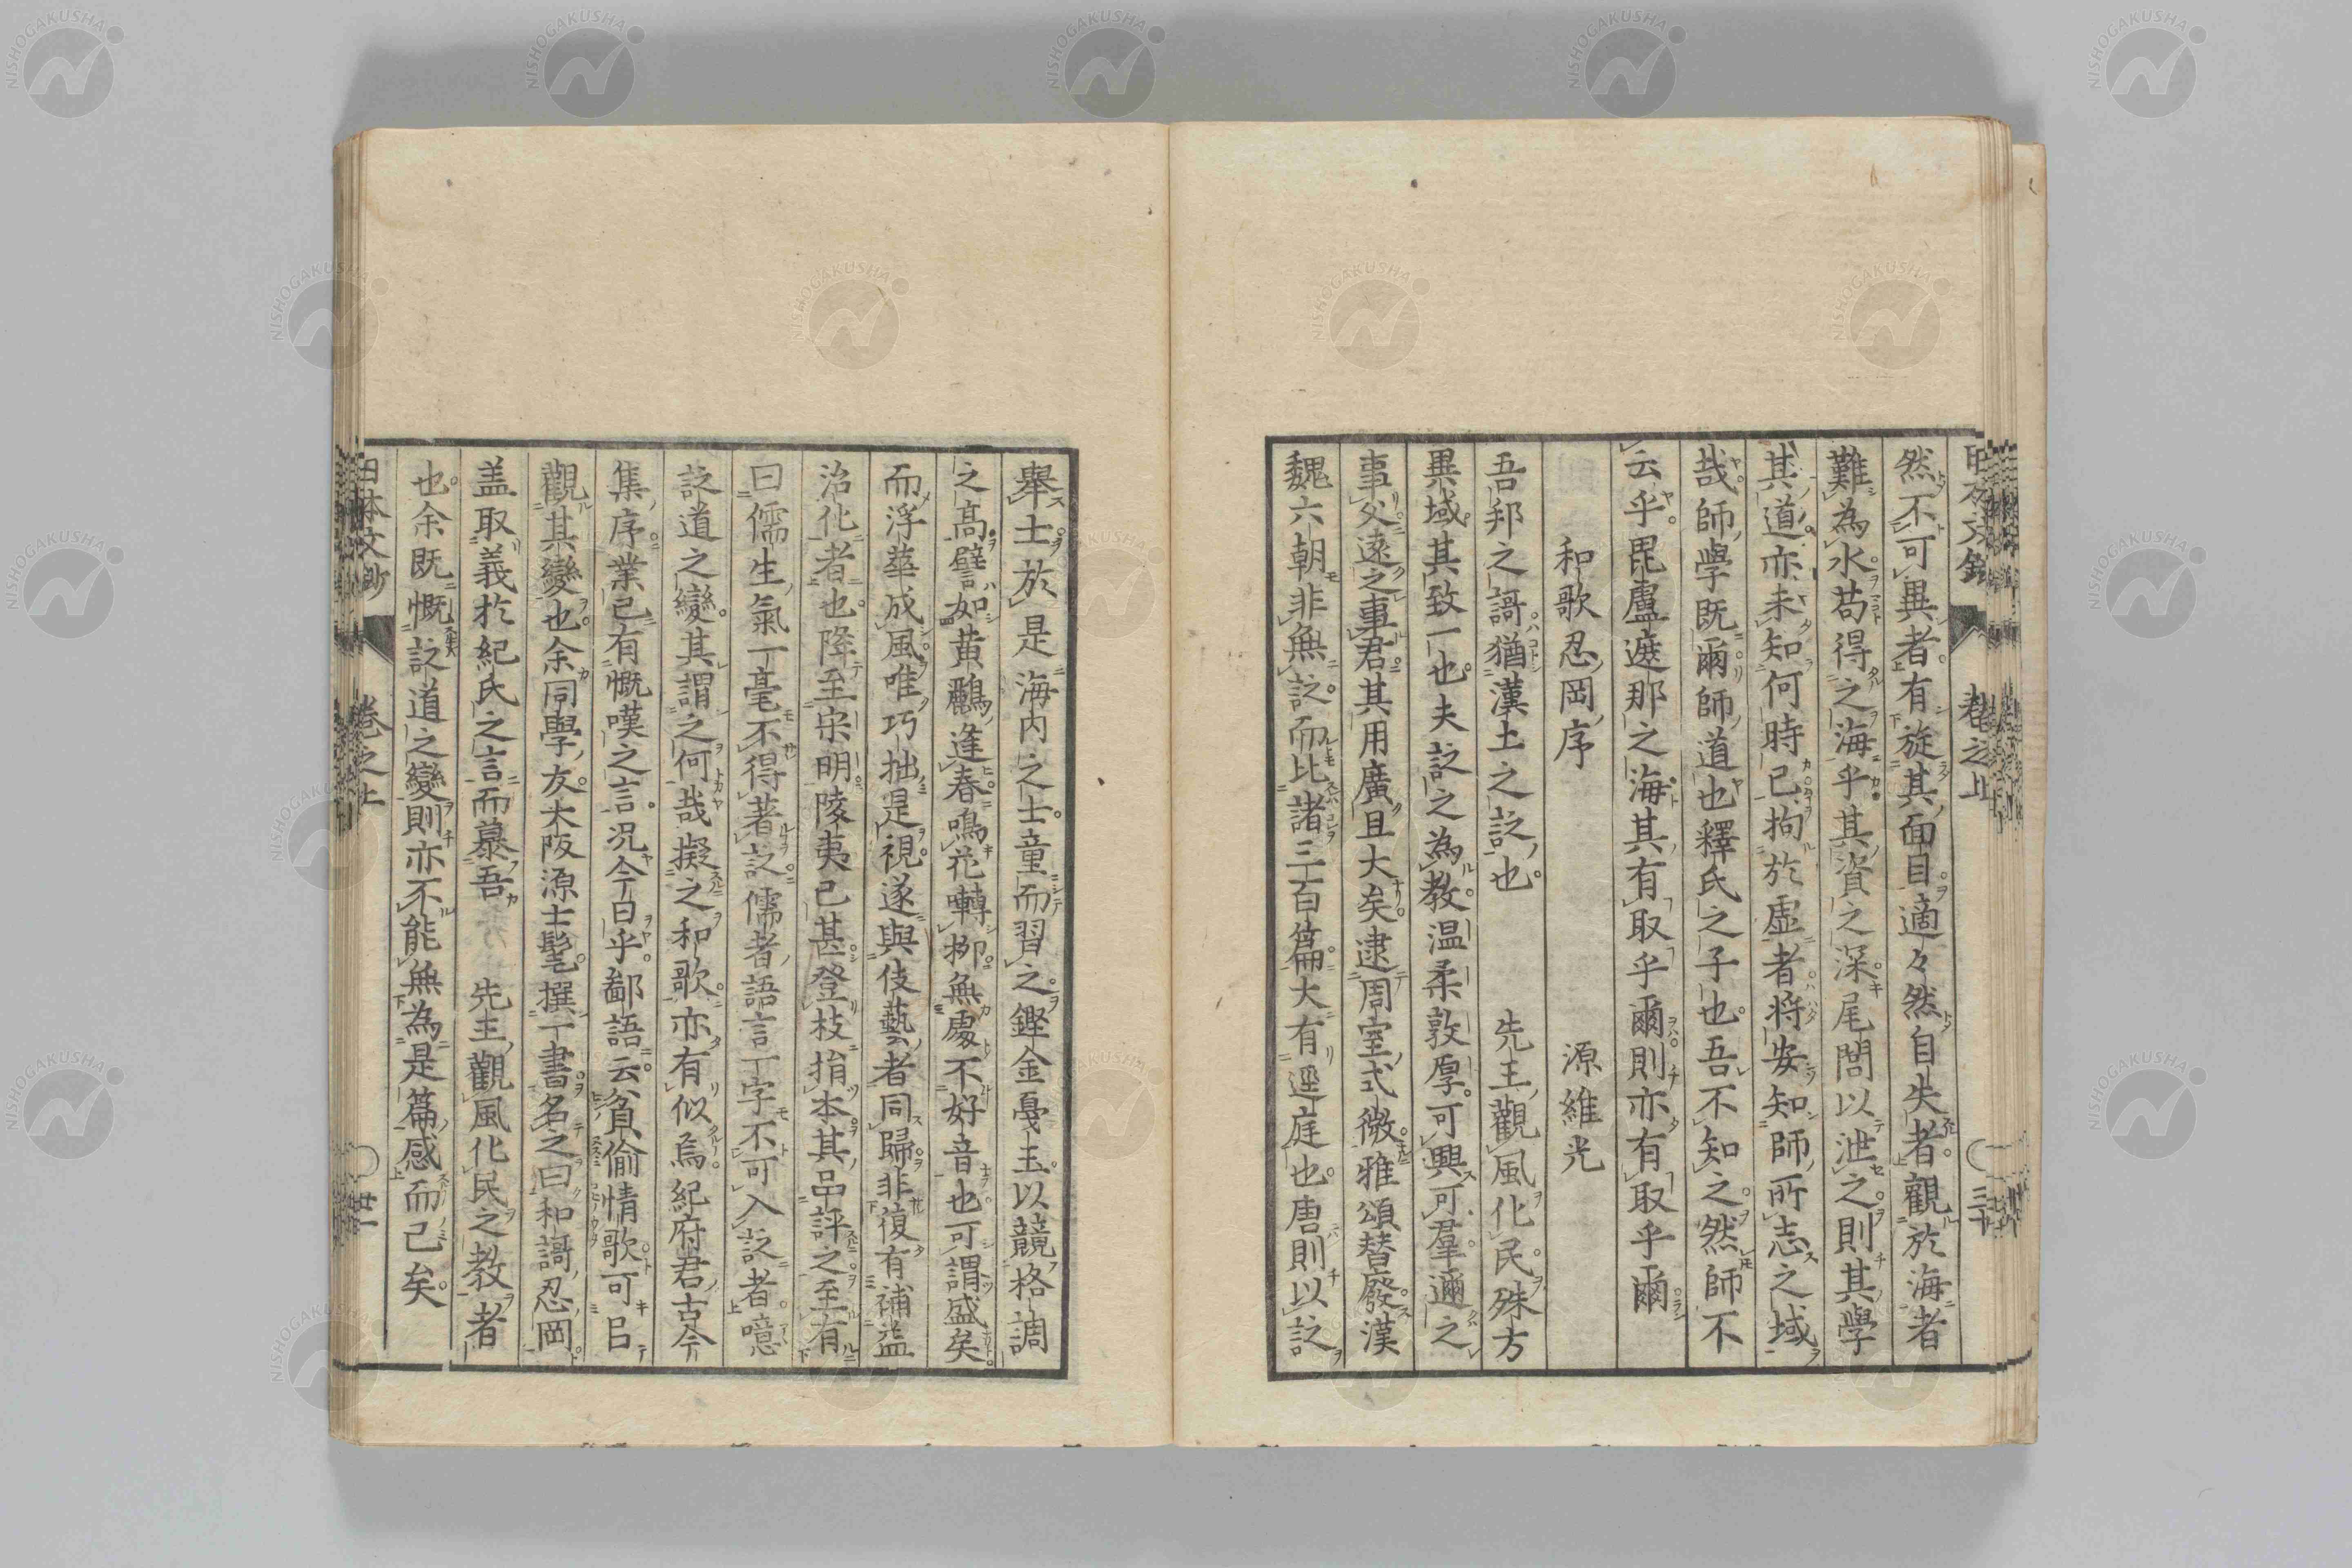 然不可異者有旋其面目適々然自失者觀於海者
難為水苟得之海乎其資之深尾閭以泄之則其學
其道亦未知何時已拘於虛者將安知師所志之域
哉師學既爾師道也釋氏之子也吾不知之然師不
云乎毘盧遮那之海其有取乎爾則亦有取乎爾
和歌忍岡序
源維光
吾邦之謌猶漢土之詩也　先王觀風化民殊方
異域其致一也夫詩之為教溫柔敦厚可興可羣邇之
事父遠之事君其用廣且大矣逮周室式微雅頌替廢漢
魏六朝非無詩而比諸三百篇大有逕庭也唐則以詩
舉士於是海内之士童而習之鏗金戛玉以競格調
之高譬如黄鸝逢春鳴花囀柳無處不好音也可謂盛矣
而浮華成風唯巧拙是視遂與伎藝者同歸非復有補益
治化者也降至宋明陵夷已甚登枝捐本其品評之至有
曰儒生氣一毫不得著詩儒者語言一字不可入詩者噫
詩道之變其謂之何哉擬之和歌亦有似焉紀府君古今
集序業已有慨嘆之言况今日乎鄙語云貧偷情歌可㠯
觀其變也余同學友木阪源士髦撰一書名之曰和謌忍岡
盖取義於紀氏之言而慕吾　先王觀風化民之教者
也余既慨詩道之變則亦不能無為是篇感而已矣
日本文鈔
卷之上
三十
卅一
NISHOGAKUSHA